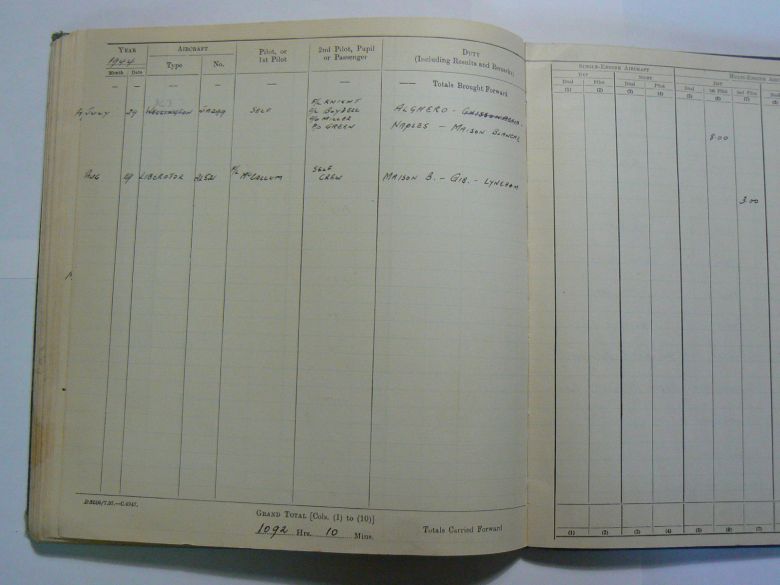 YEAR AIRCRAFT Pilot, or 1st Pilot 2nd Pilot, Pupil or Passenger DUTY (Including Results and Remarks)
1944
Month Date Type No.
— — — — — — — Totals Brought Forward
JULY 29 WELLINGTON SELF F/L KNIGHT ALGHERO -
BOYDELL
MILLER NAPLES - MAISON BLANCHE
GREEN
AUG LIBERATOR F/L McCALLUM SELF MAISON B. - GIB. - LYNEHAM
CREW
GRAND TOTAL [Cols. (1) to (10)]
1092 Hrs. 10 Mins. Totals Carried Forward
SINGLE-ENGINE AIRCRAFT MULTI-ENGINE
DAY NIGHT DAY
Dual Pilot Dual Pilot Dual 1st Pilot 2nd Pilot
(1) (2) (3) (4) (5) (6) (7)
8.00
3.00
(1) (2) (3) (4) (5) (6) (7)